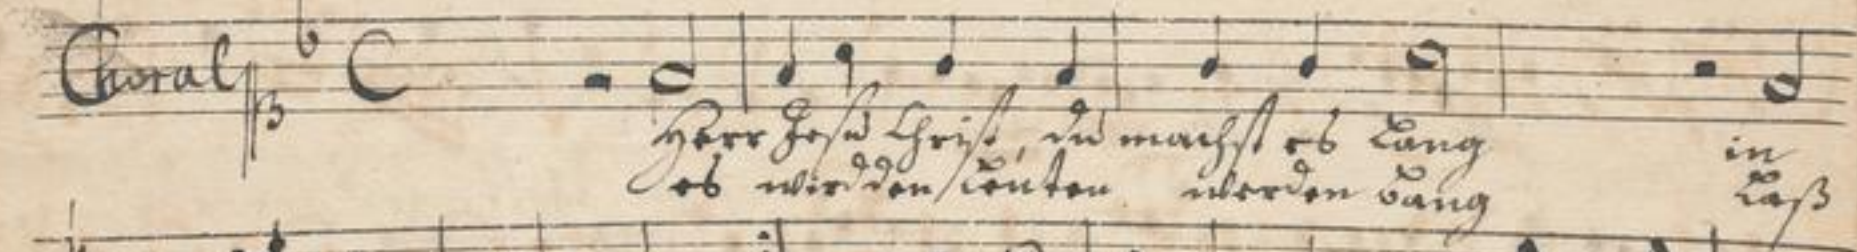 Choral
Herr Jesu Christ, du machst es lang in
es wird den leuten werden bang laß